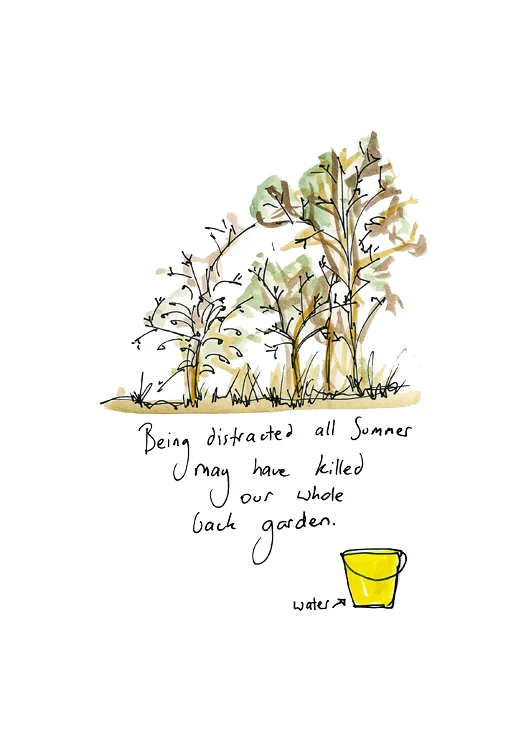 Being distracted all Summer
may have killed
our whole
back garden.
water